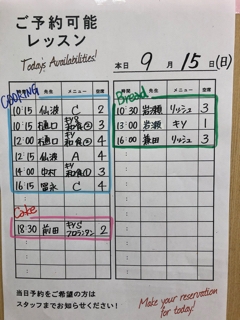 ご予約可能
レッスン
Today's Availabilities!
本日 9月 15日(日)
COOKING
時間 先生 メニュー 空席
10:15 仙波 C 2
10:15 樋口 和食② 3
12:00 樋口 和食④ 2
12:15 仙波 A 4
14:00 中村 和食① 3
16:15 冨永 C 4
Cake
18:30 前田 フロランタン 2
Bread
時間 先生 メニュー 空席
10:30 岩瀬 リッシュ 3
13:00 岩瀬 キソ 1
16:00 鎌田 リッシュ 3
当日予約をご希望の方は
スタッフまでお知らせください!
Make your reservation
for today.